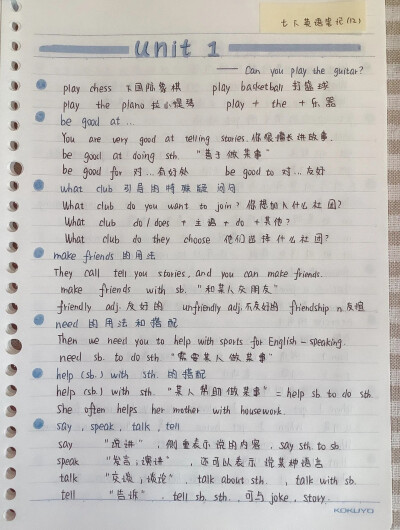 七下英语笔记(12)
unit 1
—— Can you play the guitar?
play chess 下国际象棋 play basketball 打篮球
play the piano 拉小提琴 play + the + 乐器
be good at ...
You are very good at telling stories. 你很擅长讲故事.
be good at doing sth. "善于做某事"
be good for 对...有好处 be good to 对...友好
what club 引导的特殊疑问句
What club do you want to join? 你想加入什么社团?
What club do / does + 主语 + do + 其他?
What club do they choose 他们选择什么社团?
make friends 的用法
They call tell you stories, and you can make friends.
make friends with sb. "和某人交朋友"
friendly adj. 友好的 unfriendly adj. 不友好的 friendship n. 友谊
need 的用法和搭配
Then we need you to help with sports for English-speaking.
need sb. to do sth. "需要某人做某事"
help (sb.) with sth. 的搭配
help (sb.) with sth. "某人帮助做某事" = help sb to do sth.
She often helps her mother with housework.
say, speak, talk, tell
say "说,讲", 侧重表示说的内容, say sth. to sb.
speak "发言;演讲", 还可以表示说某种语言
talk "交谈;谈论", talk about sth., talk with sb.
tell "告诉". tell sb. sth. 可与 joke, story.
KOKUYO